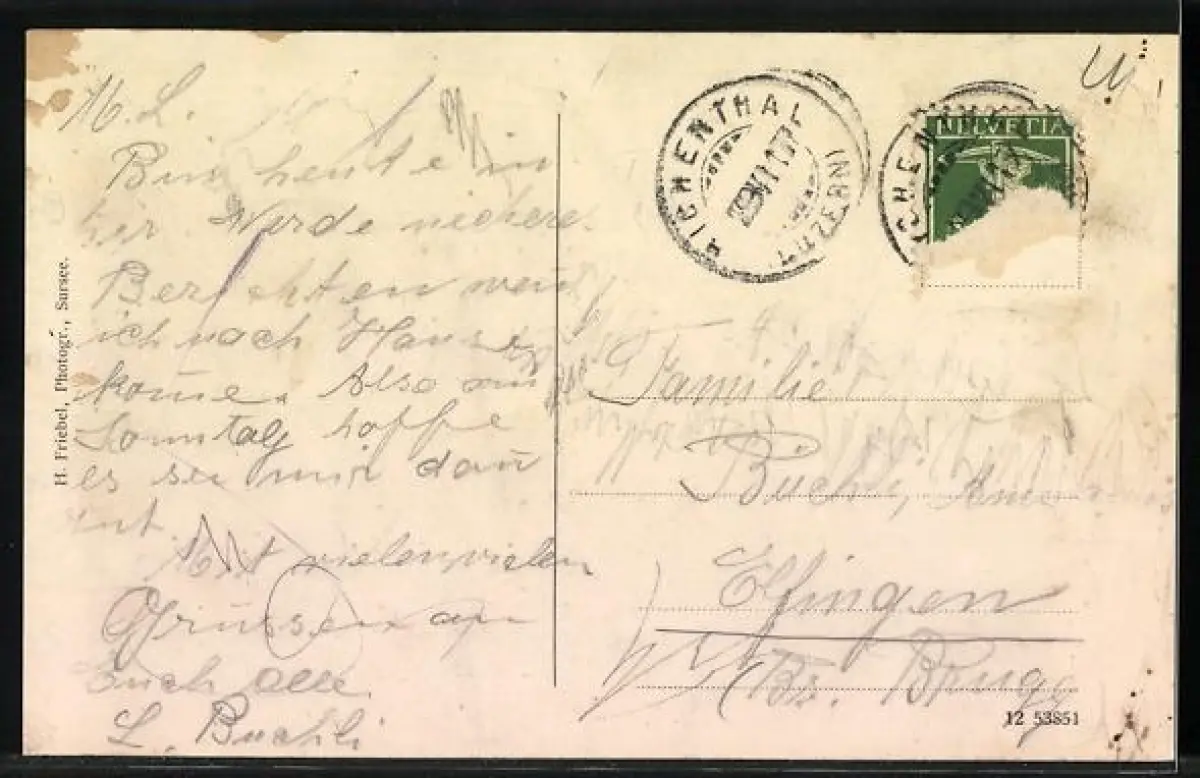 M. L.
Bin heute in
hir. Werde nähere
Berichten wenn
ich nach Hause
kome. Also am
Sonntag hoffe
es sei mir dan
Mit vielen vielen
Grüssen an
Euch alle.
L. Buchli
H. Friebel, Photogr., Sursee.
RICHENTHAL
(LUZERN)
HELVETIA
Familie
Buchli,
Effingen
Bz. Brugg
12 53851